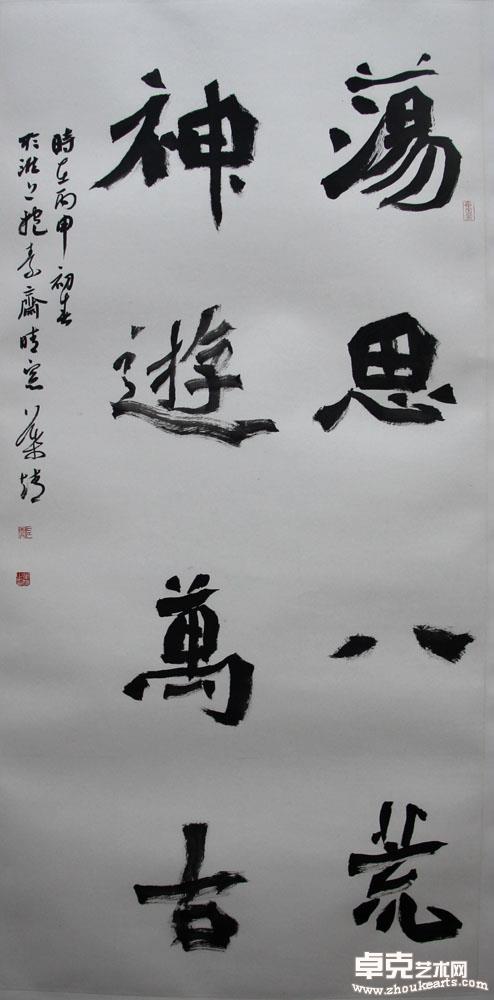 蕩思八荒
神遊萬古
時在丙申初春
於淮上抱素齋晴窗
卓克艺术网
www.zhoukearts.com